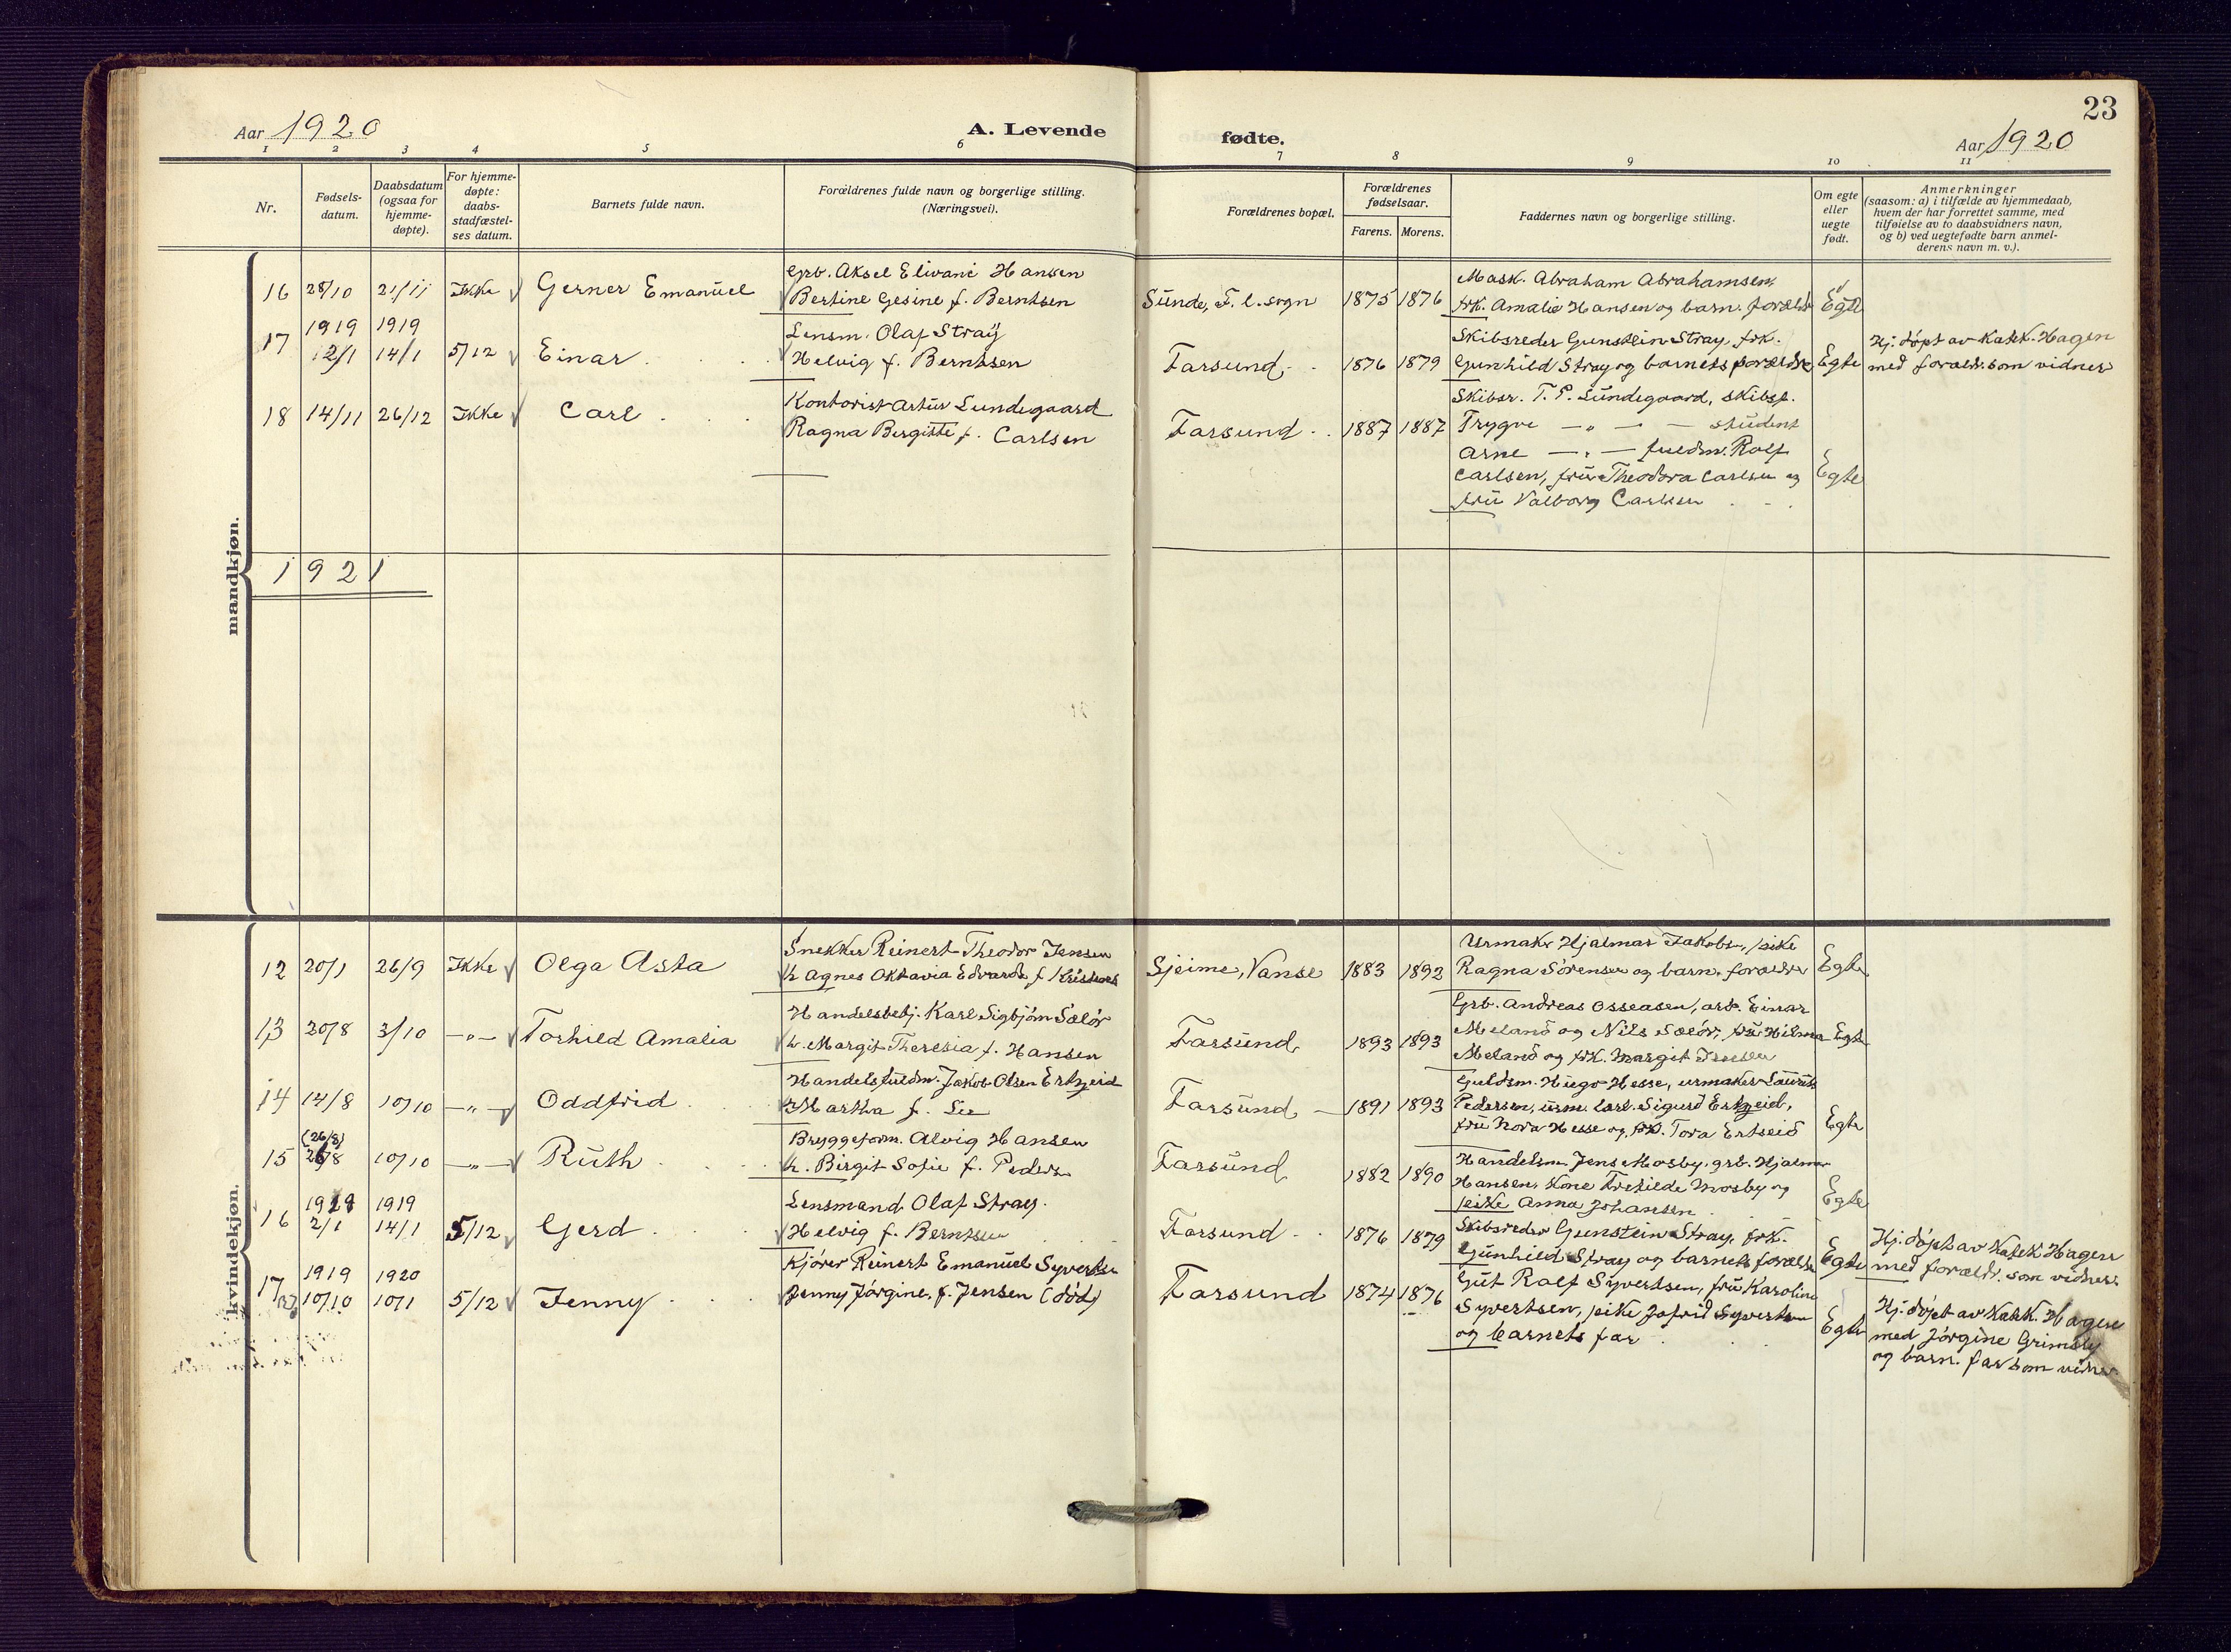 23
Aar 1920
A. Levende
fødte.
Aar 1920
1 2 3 4 5 6 7 8 9 10 11
Nr.
Fødsels-
datum.
Daabsdatum
(ogsaa for
hjemme-
døpte).
For hjemme-
døpte:
daabs-
stadfæstel-
ses datum.
Barnets fulde navn.
Forældrenes fulde navn og borgerlige stilling.
(Næringsvei).
Forældrenes bopæl.
Forældrenes
fødselsaar.
Farens. Morens.
Faddernes navn og borgerlige stilling.
Om egte
eller
uegte
født.
Anmerkninger
(saasom: a) i tilfælde av hjemmedaab,
hvem der har forrettet samme, med
tilføielse av to daabsvidners navn,
og b) ved uegtefødte barn anmel-
derens navn m. v.).
mandkjøn.
16 28/10 21/11 Ikke Gerner Emanuel
Grb. Aksel Elivani Hansen
Bertine Gesine f. Berntsen
Sunde, F. l. sogn 1875 1876
Mask. Abraham Abrahamsen,
frk. Amalie Hansen og barn. foreldr
Egte
17 1919 1919
12/1 14/1 5/12 Einar
Lensm. Olaf Stray
Helvig f. Berntsen
Farsund 1876 1879
Skibsreder Gunstein Stray, frk.
Gunhild Stray og barnets foreldre
Egte
Hj. døpt av Katek. Hagen
med foreldr. som vidner
18 14/11 26/12 Ikke Carl
Kontorist Artur Lundegaard
Ragna Bergitte f. Carlsen
Farsund 1887 1887
Skibsr. T. P. Lundegaard, skibsf.
Trygve — „ — — student
Arne — „ — fuldm. Rolf
Carlsen, fru Theodora Carlsen og
fru Valborg Carlsen
Egte
1921
kvindekjøn.
12 20/1 26/9 Ikke Olga Asta
Snekker Reinert Theodor Jensen
h. Agnes Oktavia Edvarda f.
Sjeime, Vanse 1883 1892
Urmaker Hjalmar Jakobs., pike
Ragna Sørensen og barn. forældre
Egte
13 20/8 3/10 — „ — Torhild Amalia
Handelsbetj. Karl Sigbjørn Salór
h. Margit Theresia f. Hansen
Farsund 1893 1893
Grb. Andreas Osseasen, arb. Einar
Meland og Nils Salór, fru Hilma
Meland og frk. Margit
Egte
14 14/8 10/10 — „ — Oddfrid
Handelsfuldm. Jakob Olsen Ertzeid
h. Martha f. Lie
Farsund 1891 1893
Guldsm. Hugo Hesse, urmaker Laurits
Pedersen, urm. lærl. Sigurd Ertzeid,
fru Nora Hesse og frk. Tora Ertseid
Egte
(26/8)
15 26/8 10/10 — „ — Ruth
Bryggeform. Alvig Hansen
h. Birgit Sofie f. Peders.
Farsund 1882 1890
Handelsm. Jens Mosby, grb. Hjalmar
Hansen, kone Mosby og
pike Anna Johansen
Egte
16 1919 1919
2/1 14/1 5/12 Gerd
Lensmand Olaf Stray
Helvig f. Berntsen
Farsund 1876 1879
Skibsreder Gunstein Stray, frk.
Gunhild Stray og barnets forældre
Egte
Hj. døpt av Katek. Hagen
med foreldr. som vidner
17 1919 1920
10/10 10/1 5/12 Jenny
Kjører Reinert Emanuel Syvertsen
Jenny Jørgine f. Jensen (død)
Farsund 1874 1876
Gut Rolf Syvertsen, fru Karoline
Syvertsen, pike Jofrid Syvertsen
og barnets far
Egte
Hj. døpt av Katek. Hagen
med Jørgine Grimsby
og barn. far som vidner